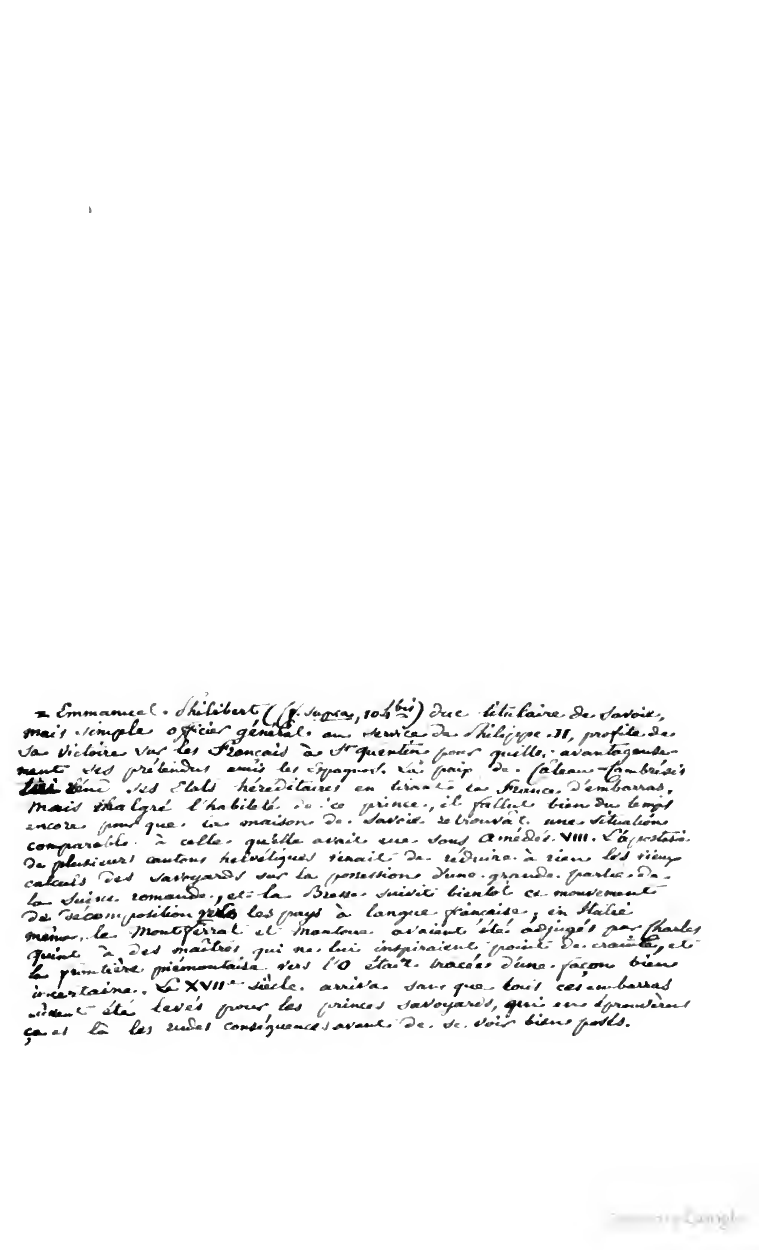 = Emmanuel-Philibert (cf. supra, 104 bis) duc titulaire de Savoie,
mais simple officier général au service de Philippe II, profite de
sa victoire sur les Français à St quentin pour quitter avantageuse-
ment ses prétendus amis les Espagnols. La paix de Câteau-Cambrésis
ses Etats héréditaires en tirant la France d'embarras.
Mais malgré l'habileté de ce prince, il fallut bien du temps
encore pour que la maison de Savoie retrouvât une situation
comparable à celle qu'elle avait eue sous Amédée VIII. L'apostasie
de plusieurs cantons helvétiques venait de réduire à rien les vieux
calculs des savoyards sur la possession d'une grande partie de
la Suisse romande, et la Bresse suivit bientôt ce mouvement
de décomposition vers les pays à langue française; en Italie
même, le Montferrat et Mantoue avaient été adjugés par Charles
quint à des maîtres qui ne lui inspiraient point de crainte, et
la frontière piémontaise vers l'O était tracée d'une façon bien
incertaine. Le XVIIe siècle arriva sans que tous ces embarras
eussent été levés pour les princes savoyards, qui en éprouvèrent
çà et là les rudes conséquences avant de se voir bien posés.